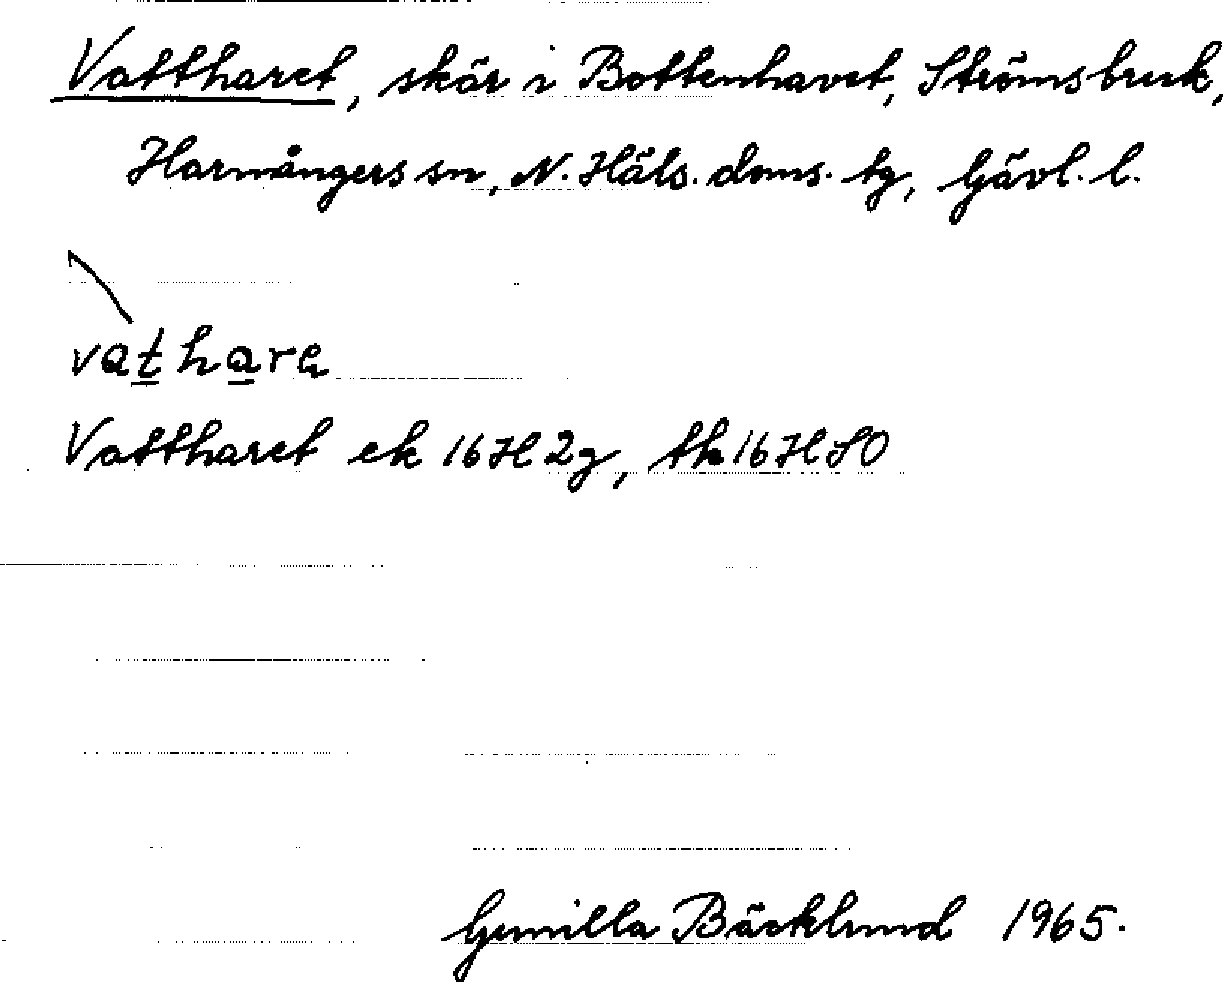 Vattharet, skär i Bottenhavet, Strömsbruk,
Harmångers sn, N. Häls. doms. tg, Gävl. l.
vathara
Vattharet ek 16H2g, tk 16HSO
Gunilla Bäcklund 1965.